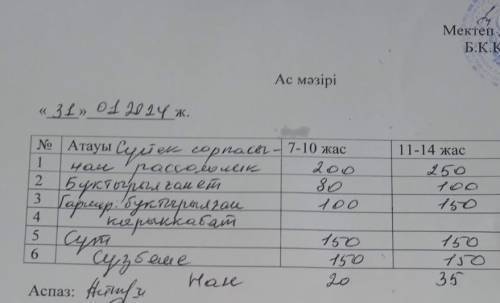 Мектеп
Б.К.К
Ас мәзірі
«31» 01 2024 ж.
№ Атауы сорпасы- 7-10 жас 11-14 жас
1 нан рассольник 200 250
2 Бұқтырылған ет 80 100
3 Гарнир: бұқтырылған 100 150
4 қырыққабат
5 Сүт 150 150
6 Сүзбеше 150 150
Аспаз: Нан 20 35